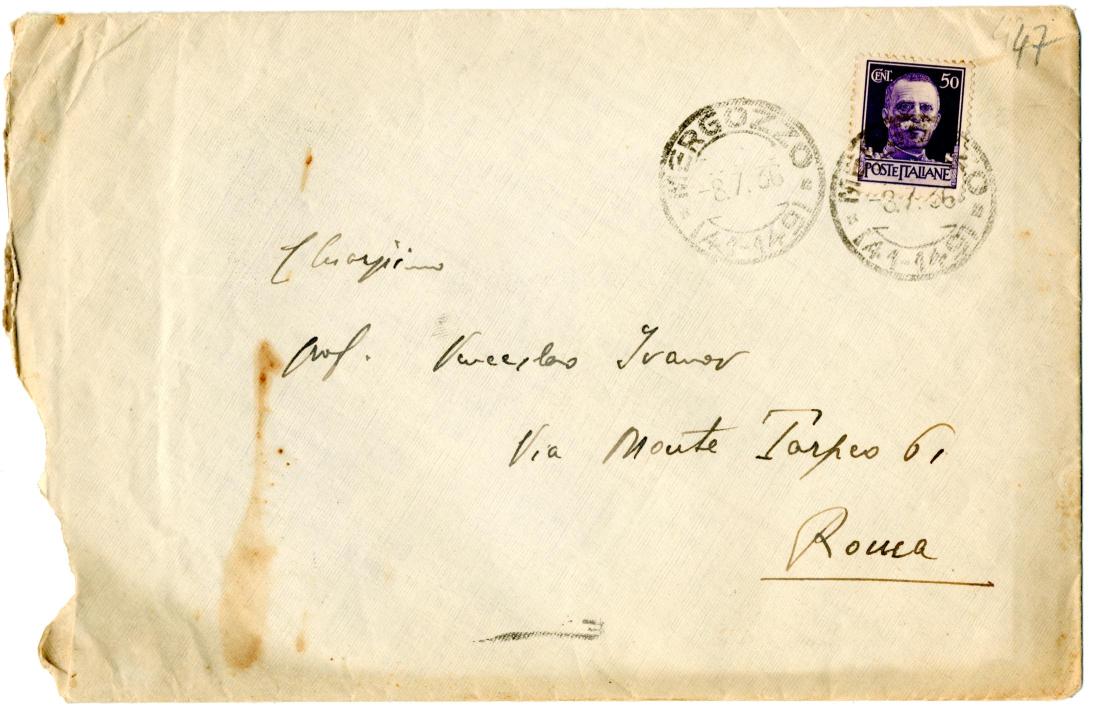 47
CENT. 50
POSTE ITALIANE
MERGOZZO
-8.7.36
(41-149)
MERGOZZO
-8.7.36
(41-149)
Chiarissimo
prof. Venceslao Ivanov
Via Monte Tarpeo 61
Roma